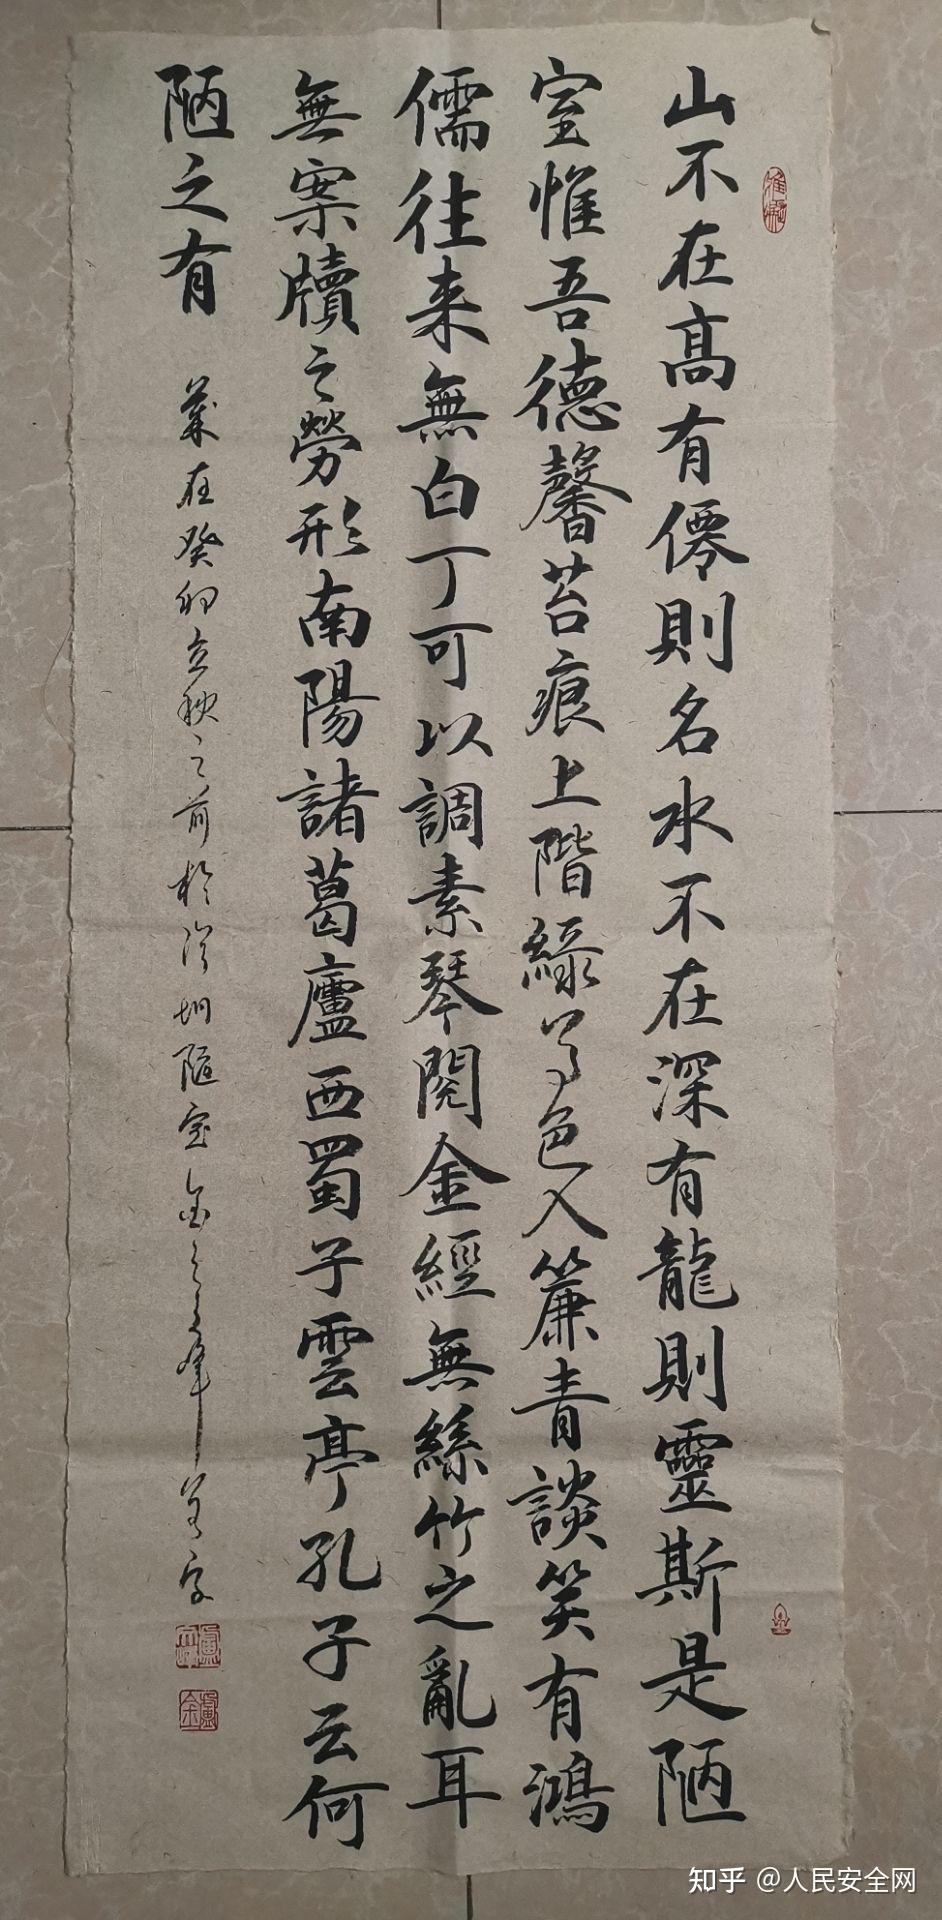 山不在高有僊則名水不在深有龍則靈斯是陋
室惟吾德馨苔痕上階緑草色入簾青談笑有鴻
儒往来無白丁可以調素琴閱金經無絲竹之亂耳
無案牘之勞形南陽諸葛廬西蜀子雲亭孔子云何
陋之有
在癸卯立秋之前於深圳陋室
知乎 @人民安全网